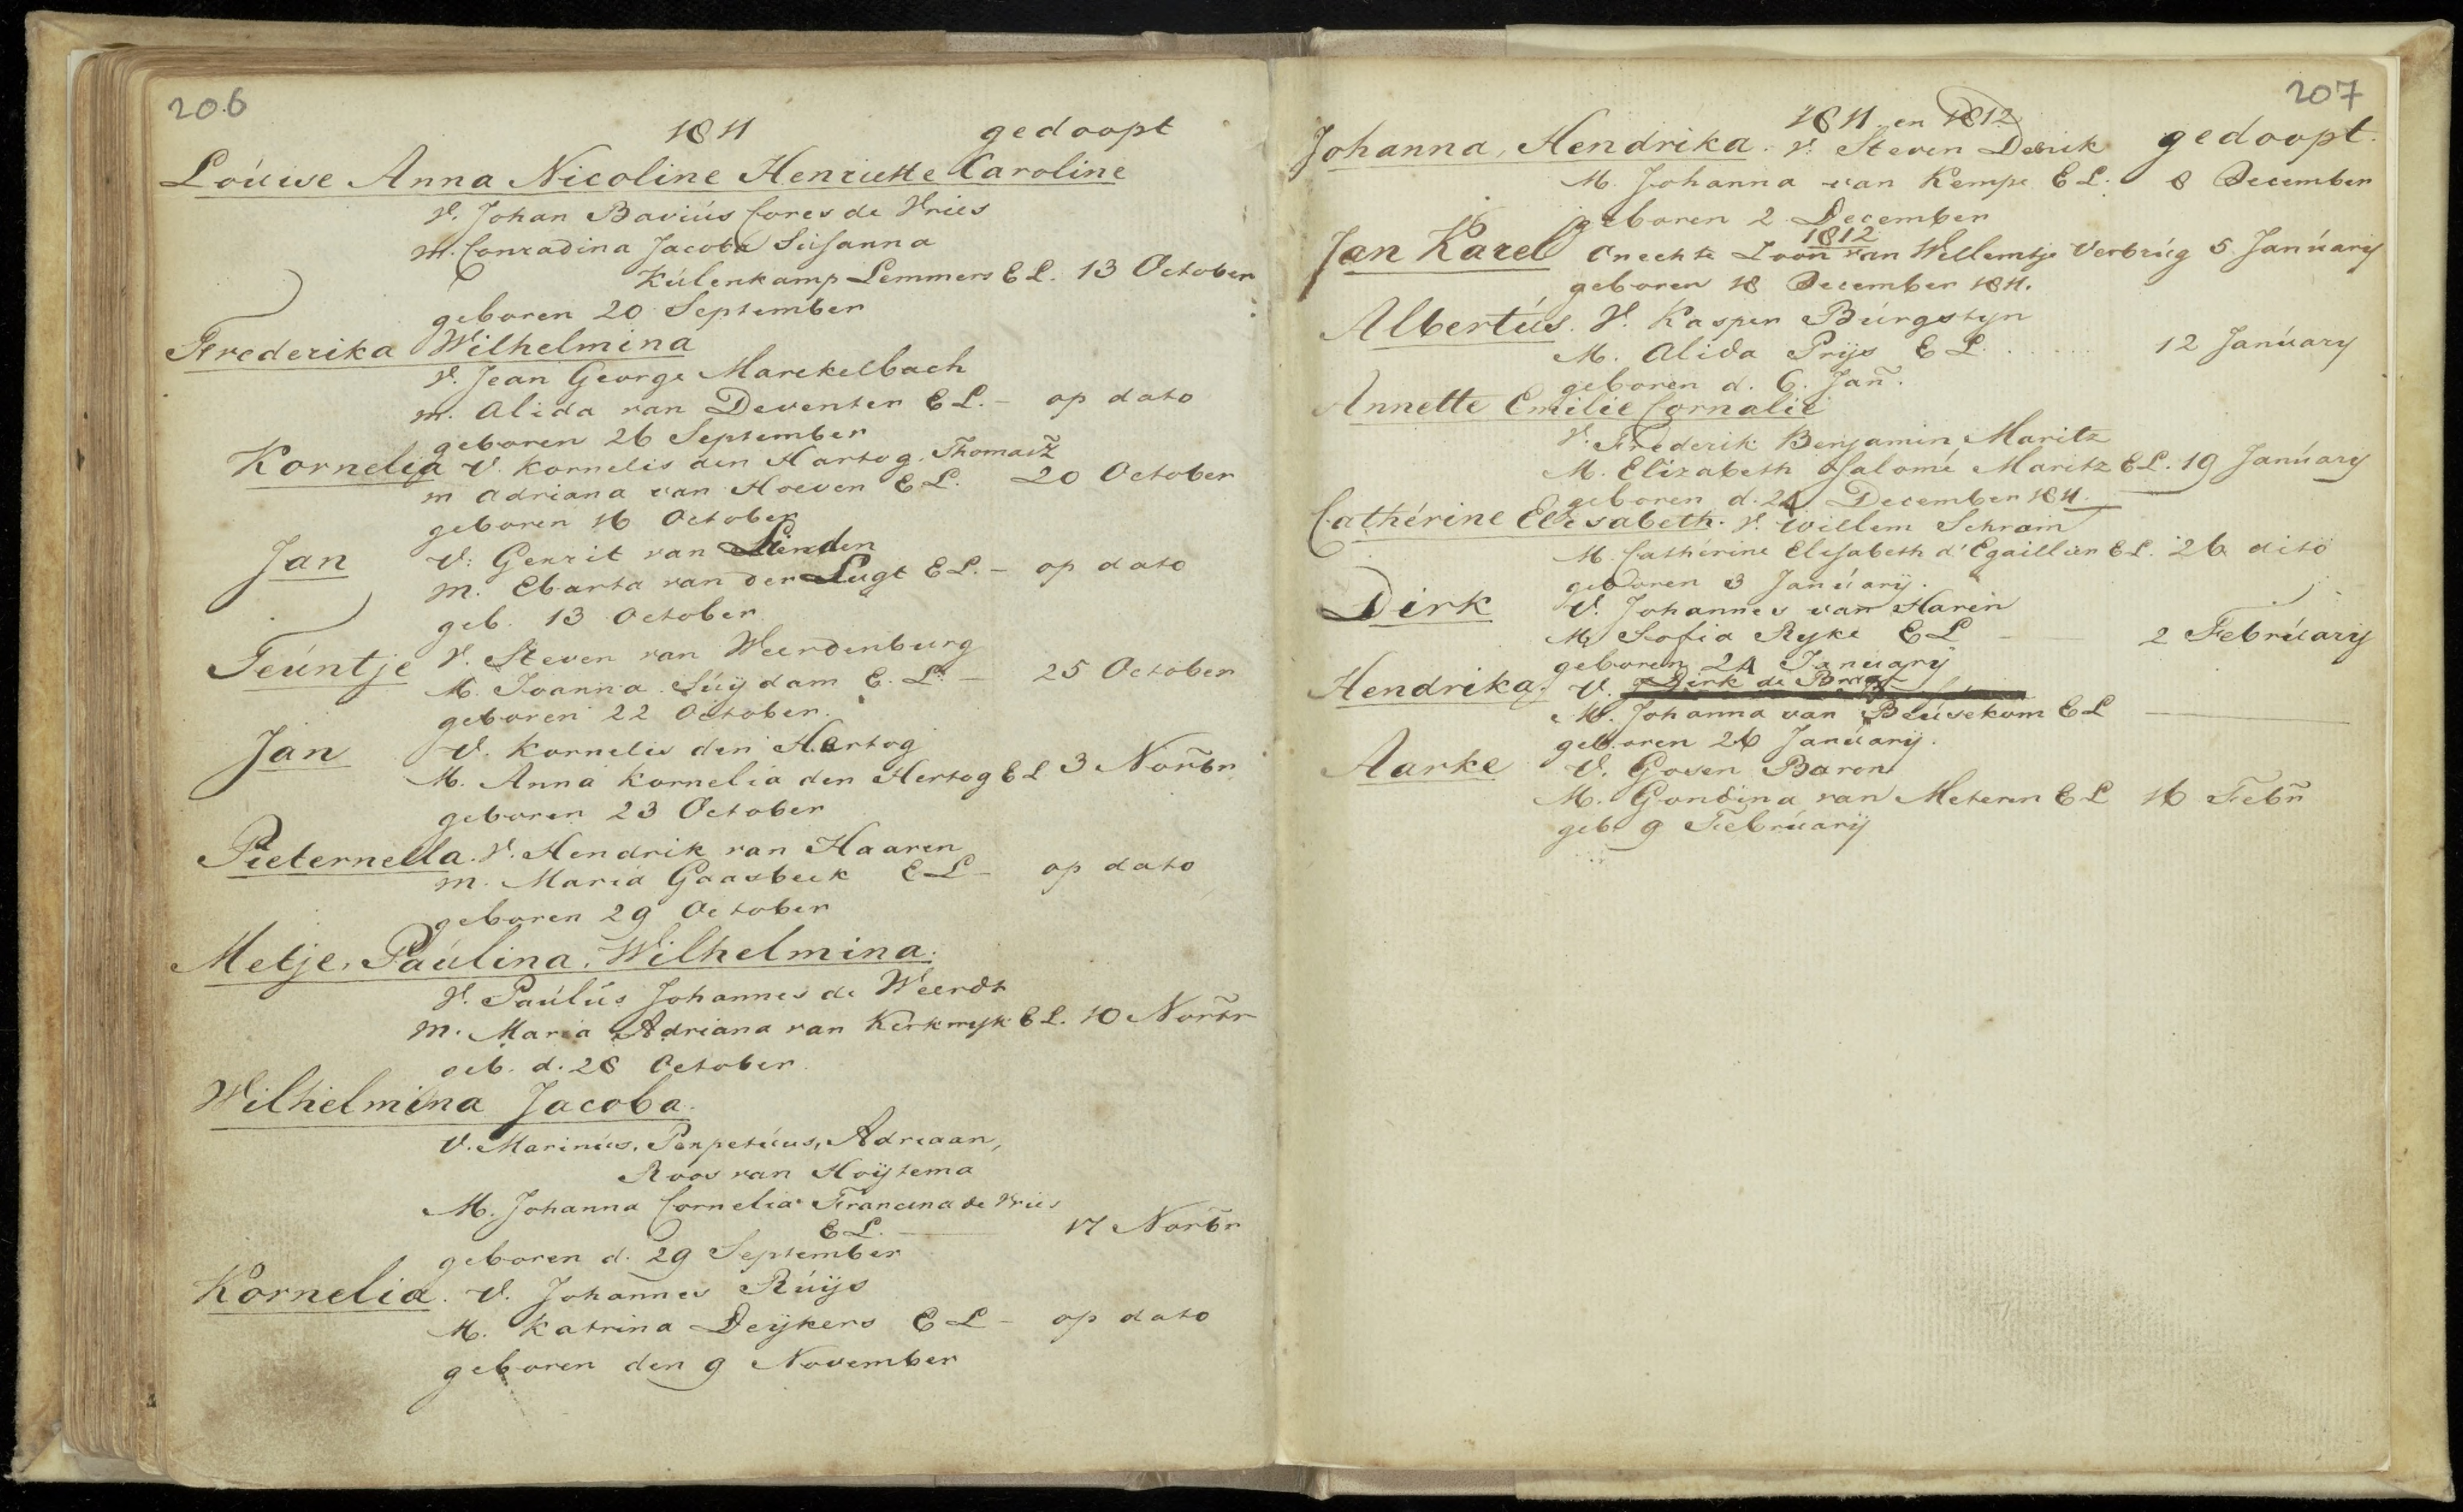 206
1811 gedoopt
Loúise Anna Nicoline Henriette Caroline
V. Johan Baviús Cores de Vries
m. Conradina Jacoba Súsanna
Kúlenkamp Lemmers E L. 13 October
geboren 20 September
Frederika Wilhelmina
V. Jean George Marckelbach
m. Alida van Deventer E L. – op dato
geboren 26 September
Kornelia V. Kornelis den Hartog. Thomasz
m Adriana van Hoeven E L. 20 October
geboren 16 October
Jan V: Gerrit van Lienden
m. Ebarta van der Lugt E L. – op dato
geb. 13 October
Teúntje V. Steven van Weerdenburg
M. Joanna Súÿdam E. L. – 25 October
geboren 22 October.
Jan V. Kornelis den Hertog
M. Anna Kornelia den Hertog E L 3 Novbr
geboren 23 October
Pieternella. V. Hendrik van Haaren
m. Maria Gaasbeek E L – op dato
geboren 29 October
Metje, Paúlina, Wilhelmina.
V. Paúlús Johannes de Weerdt
m. Maria Adriana van Kerkwyk E L. 10 Novbr
geb. d. 28 October.
Wilhelmina Jacoba.
V. Marinús, Perpetúus, Adriaan,
Roos van Hoÿtema
M. Johanna Cornelia Francina de Vries
E L. 17 Novbr
geboren d. 29 September
Kornelia. V. Johannes Rúÿs
M. Katrina Deÿkers E L – op dato
geboren den 9 November
207
1811 en 1812
Johanna, Hendrika. V. Steven Derik gedoopt.
M. Johanna van Kempe E L. 8 December
geboren 2 December
1812
Jan Karel Onechte Zoon van Willemtje Verbrúg 5 Janúarÿ
geboren 18 December 1811.
Albertús. V. Kasper Búrgstyn
M. Alida Prÿs E L. . . . . . 12 Janúary
geboren d. 6. Jañ.
Annette Emilie Cornalie
V. Frederik Benjamin Maritz
M. Elizabeth Salomé Maritz E L. 19 Janúary
geboren d. 24 December 1811.
Cathérine Elisabeth. V. Willem Schram
M. Cathérine Elisabeth d'Egaillier E L. 26 dito
geboren 3 Janúarÿ.
Dirk V. Johannes van Haren
M. Sofia Ryke E L – 2 Febrúarÿ
geboren 24 Januarÿ
Hendrika. V. Dirk de Bruyn
M. Johanna van Beúsekom E L
geboren 26 Janúarÿ.
Aarke V. Goven Baron
M. Gondina van Meteren E L 16 Febr̃
geb. 9 Febrúarÿ